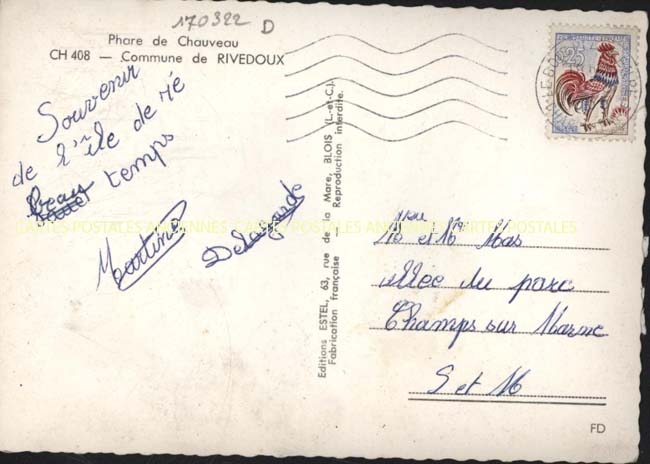 170322 D
Phare de Chauveau
CH 408 — Commune de RIVEDOUX
Souvenir
de l'île de ré
beau temps
Martine
Delagarde
Editions ESTEL, 63, rue de la Mare, BLOIS (L.-et-C.)
Fabrication française — Reproduction interdite.
CARTES POSTALES ANCIENNES CARTES POSTALES ANCIENNES CARTES POSTALES
0,25
Mme et Mr Mas
allée du parc
Champs sur Marne
S et M
FD